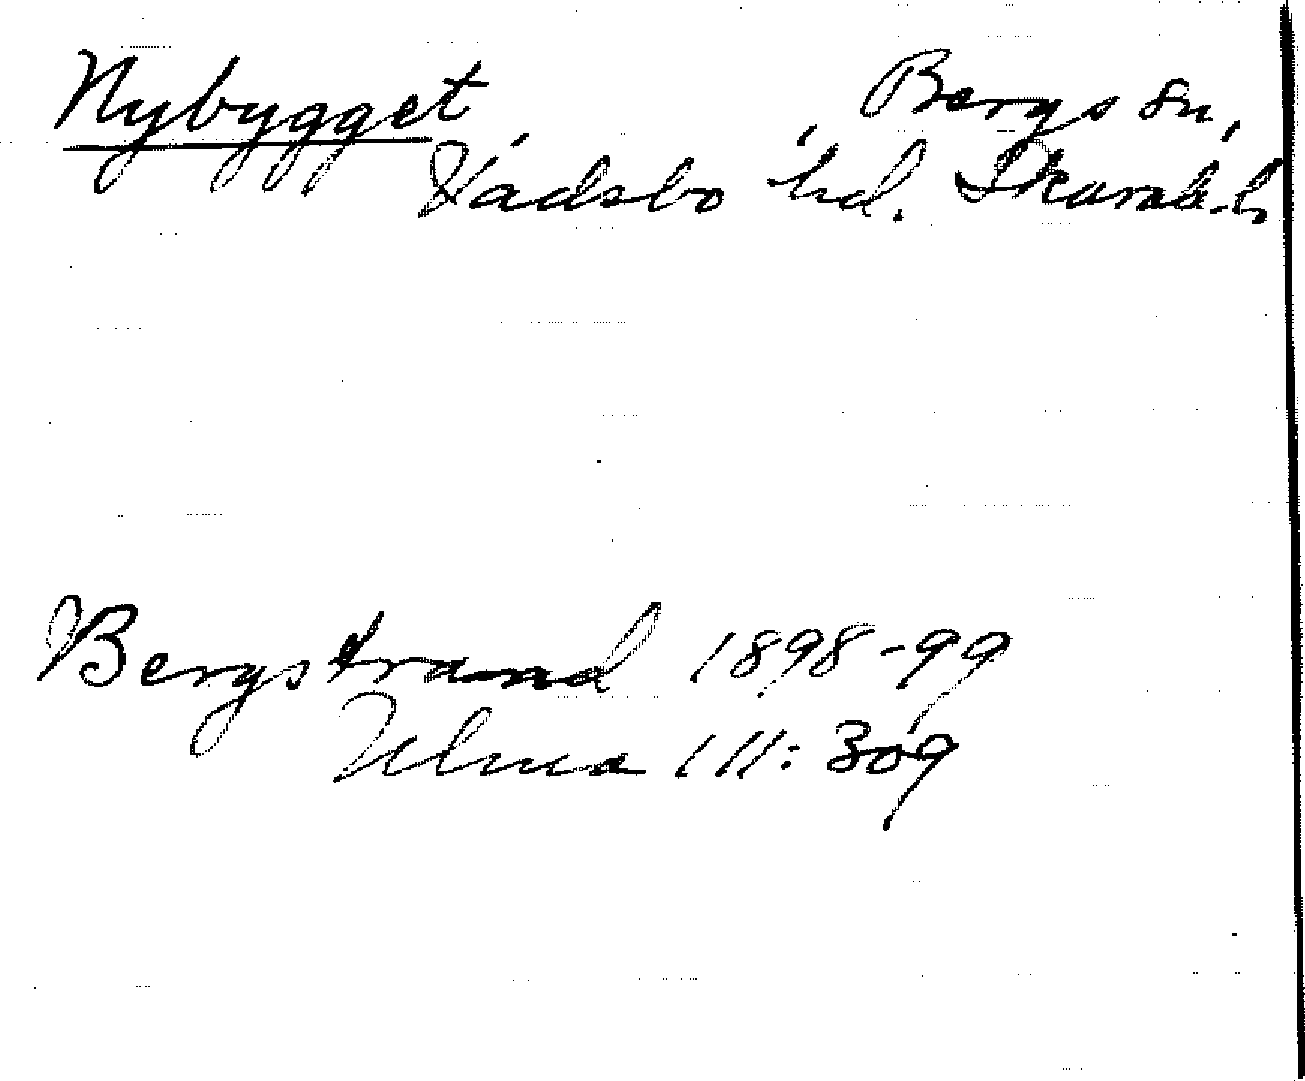 Nybygget, Bergs sn,
Vadsbo hd. Skarab.l.
Bergstrand 1898-99
Ulma 111:309